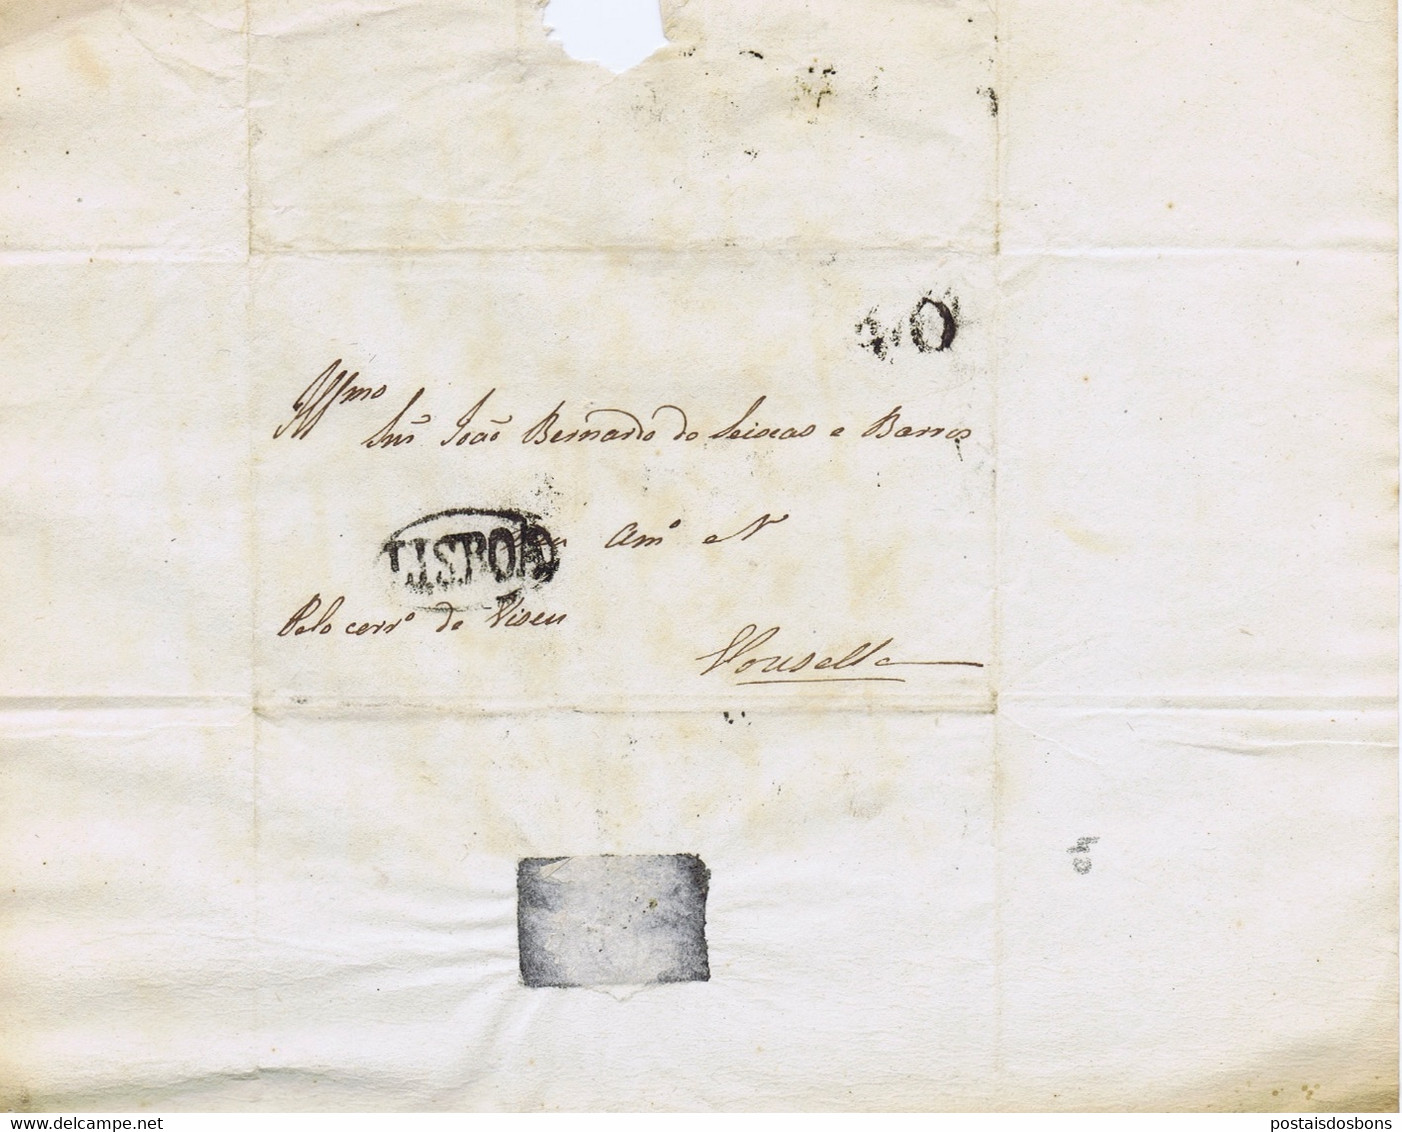 40
Illmo
Snr João Bernardo de Seixas e Barros
LISBOA
Amo e V
Pelo corro de Viseu
Vousella
40
www.delcampe.net
postaisdosbons